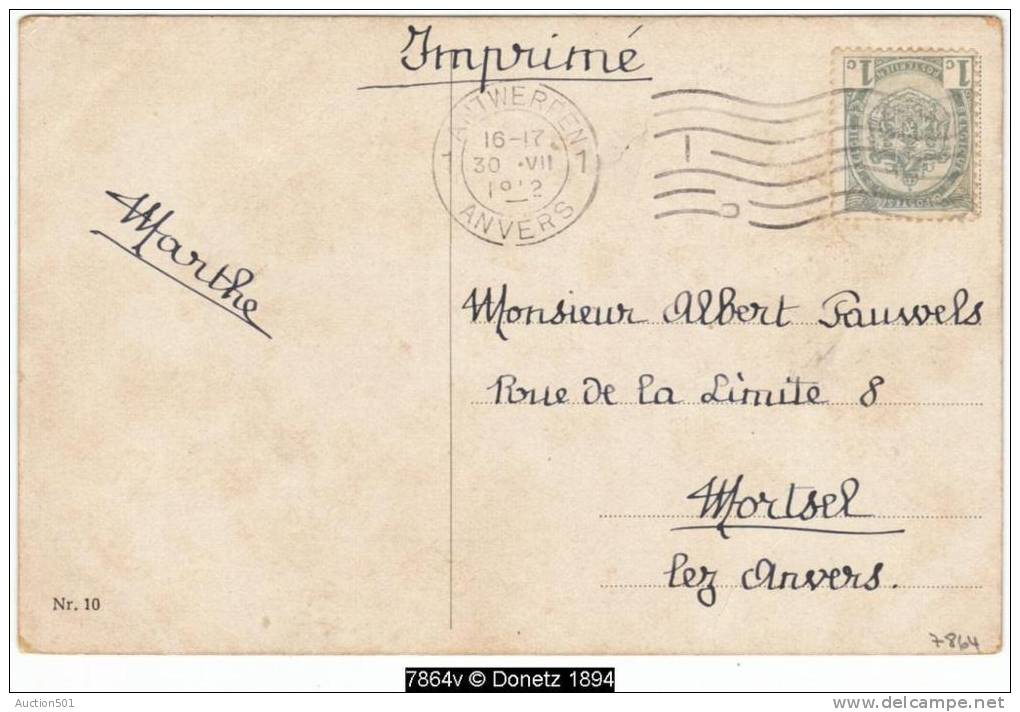 Imprimé
ANTWERPEN
1 16-17 1
30 VII
1912
ANVERS
1c 1c
Marthe
Monsieur Albert Pauwels
Rue de la Limite 8
Mortsel
lez Anvers.
Nr. 10
7864
7864v © Donetz 1894
Auction501
www.delcampe.net